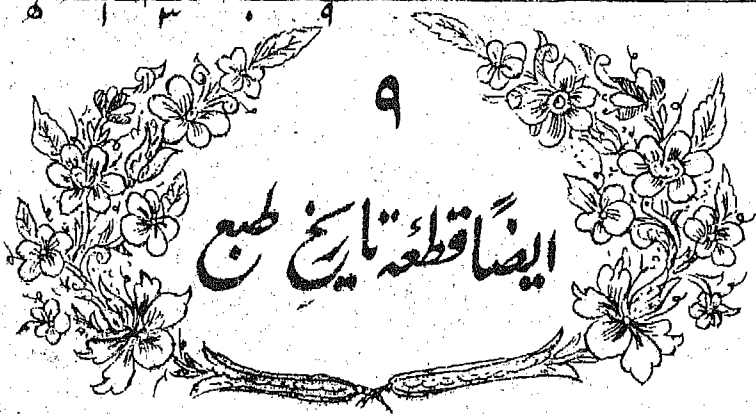 ۱۳۰۹ھ
۹
ایضاً قطعۂ تاریخ طبع